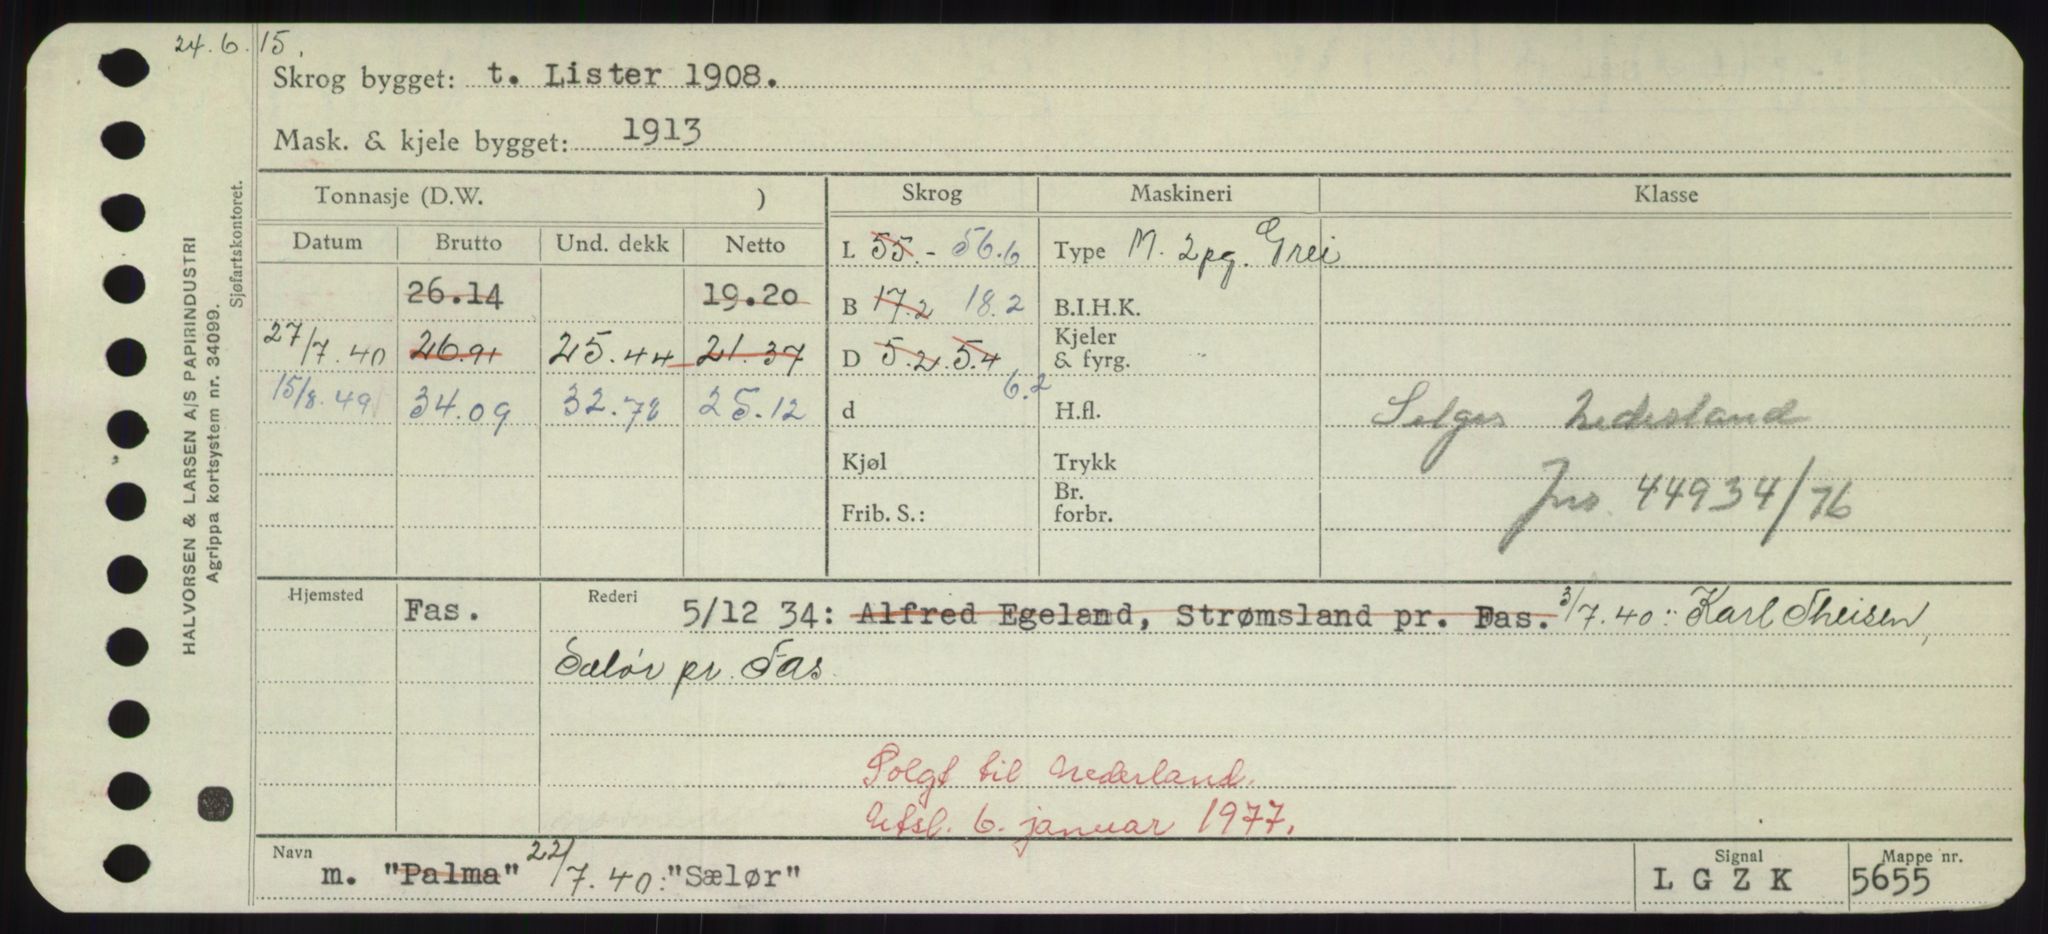 24.6.15.
Skrog bygget: t. Lister 1908.
Mask. & kjele bygget: 1913
HALVORSEN & LARSEN A/S PAPIRINDUSTRI
Agrippa kortsystem nr. 34099.
Sjøfartskontoret.
Tonnasje (D.W. ) Skrog Maskineri Klasse
Datum Brutto Und. dekk Netto
26.14 19.20
27/7.40 26.91 25.44 21.37
15/8.49 34.09 32.78 25.12
L 55.- 56.6
B 17.2 18.2
D 5.2 5.4
6.2
d
Kjøl
Frib. S.:
Type M. 2pg. Grei
B.I.H.K.
Kjeler
& fyrg.
H.fl.
Trykk
Br.
forbr.
Selges Nederland
Jns. 44934/76
Hjemsted Fas. Rederi 5/12 34: Alfred Egeland, Strømsland pr. Fas. 3/7.40: Karl Theisen,
Sælør pr. Fas.
Solgt til Nederland.
Utsl. 6. januar 1977.
Navn m. "Palma" 22/7.40: "Sælør"
Signal L G Z K
Mappe nr. 5655